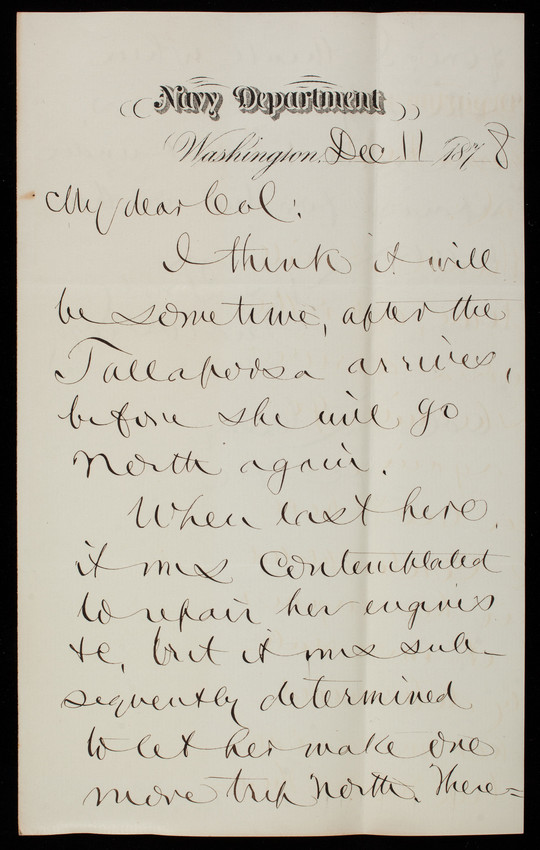 Navy Department
Washington, Dec 11 1878
My dear Col:
I think it will
be sometime, after the
Tallapoosa arrives,
before she will go
North again.
When last here,
it was contemplated
to repair her engines
&c, but it was sub-
sequently determined
to let her make one
more trip North. There=